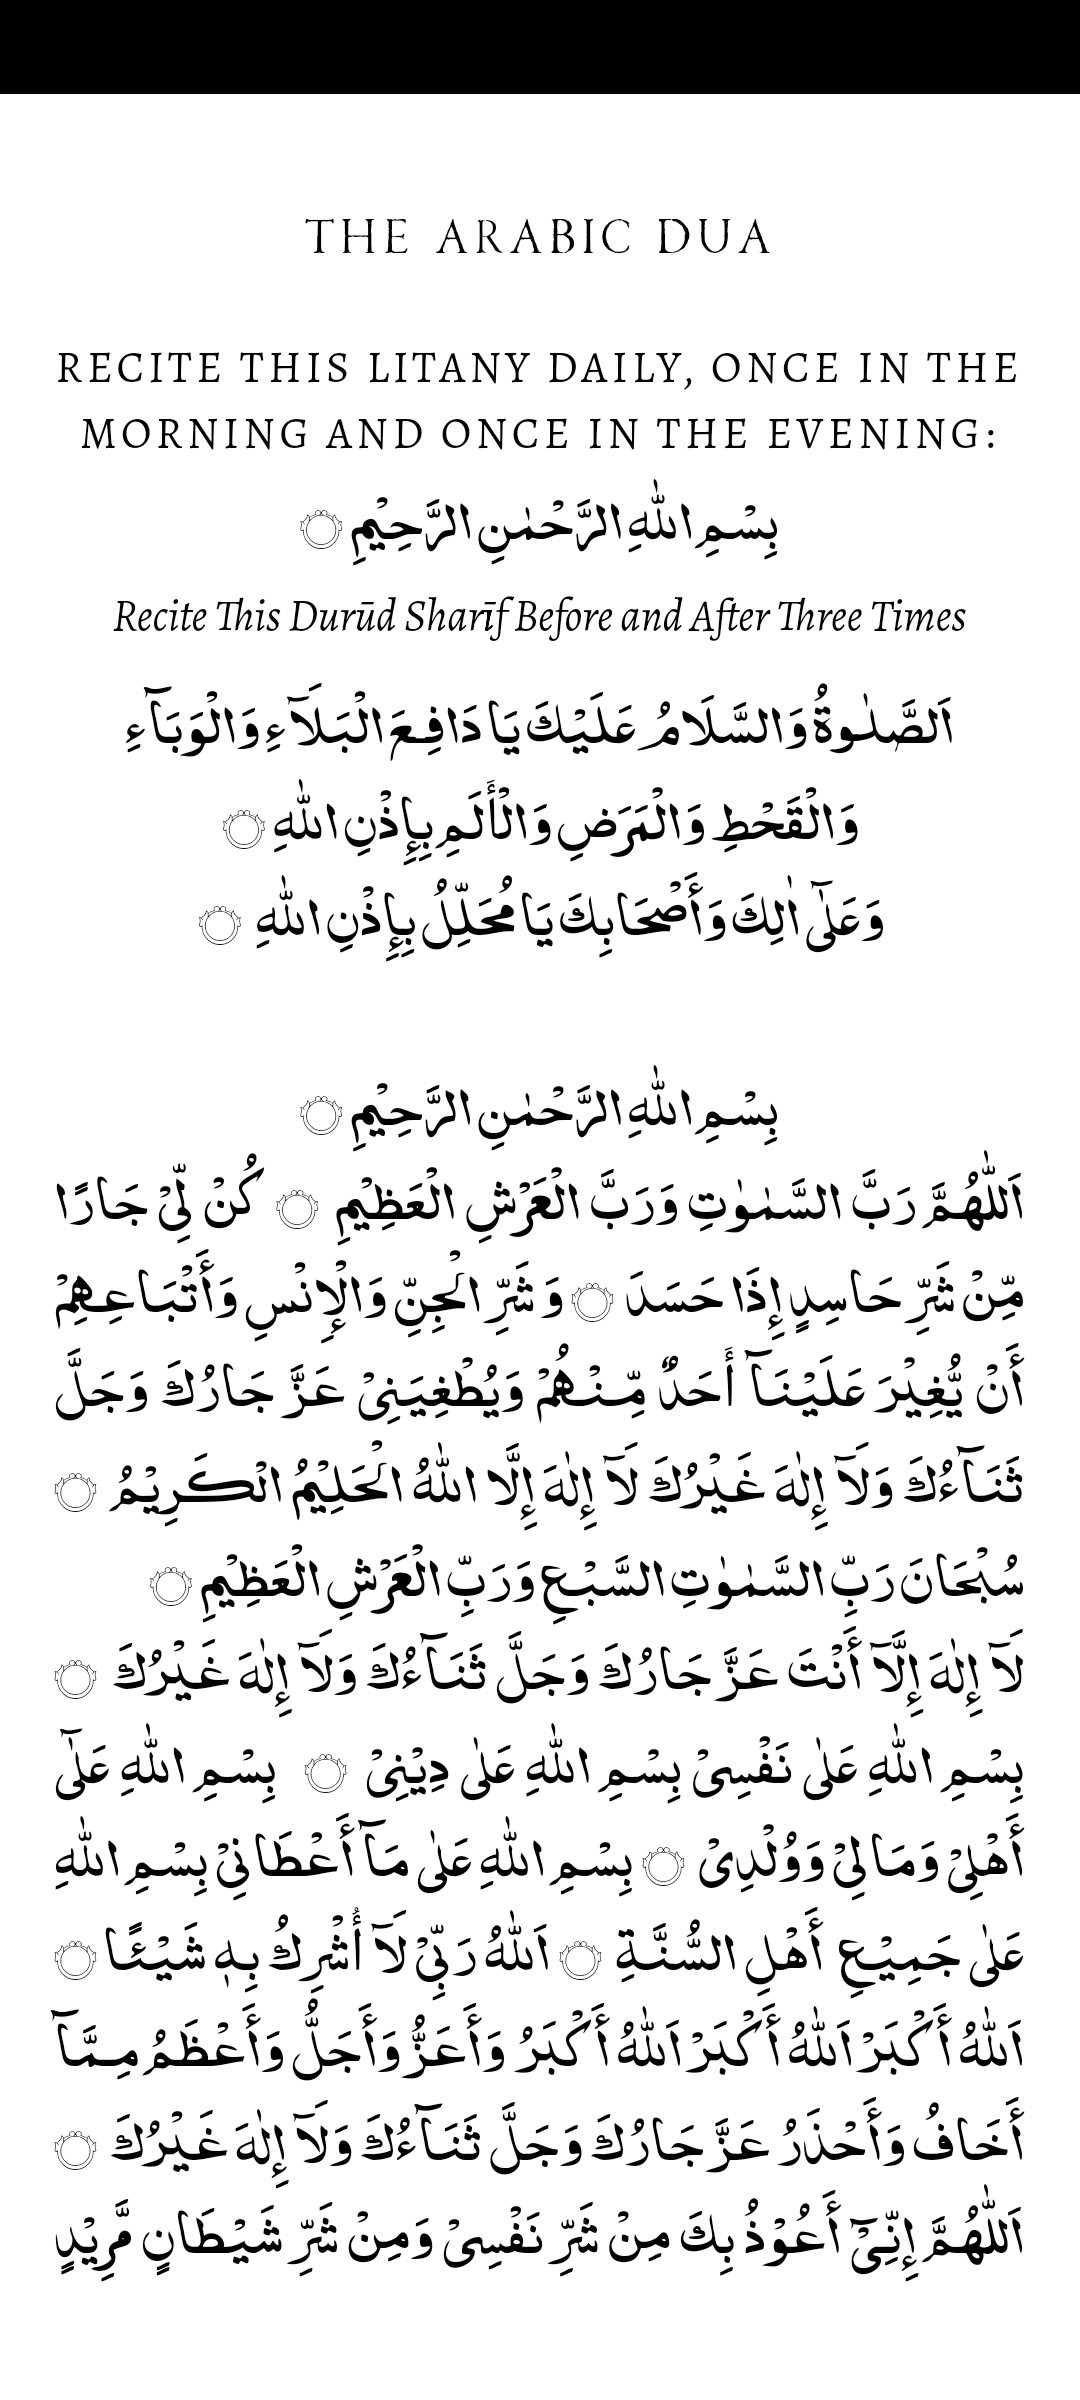 THE ARABIC DUA
RECITE THIS LITANY DAILY, ONCE IN THE
MORNING AND ONCE IN THE EVENING:
بِسْمِ اللّٰهِ الرَّحْمٰنِ الرَّحِيْمِ ۝
Recite This Durūd Sharīf Before and After Three Times
اَلصَّلٰوةُ وَالسَّلَامُ عَلَيْكَ يَا دَافِعَ الْبَلَآءِ وَالْوَبَآءِ
وَالْقَحْطِ وَالْمَرَضِ وَالْأَلَمِ بِإِذْنِ اللّٰهِ ۝
وَعَلٰٓى اٰلِكَ وَأَصْحَابِكَ يَا مُحَلِّلُ بِإِذْنِ اللّٰهِ ۝
بِسْمِ اللّٰهِ الرَّحْمٰنِ الرَّحِيْمِ ۝
اَللّٰهُمَّ رَبَّ السَّمٰوٰتِ وَرَبَّ الْعَرْشِ الْعَظِيْمِ ۝ كُنْ لِّيْ جَارًا
مِّنْ شَرِّ حَاسِدٍ إِذَا حَسَدَ ۝ وَ شَرِّ الْجِنِّ وَالْإِنْسِ وَأَتْبَاعِهِمْ
أَنْ يُّغِيْرَ عَلَيْنَآ أَحَدٌ مِّنْهُمْ وَيُطْغِيَنِيْ عَزَّ جَارُكَ وَجَلَّ
ثَنَآءُكَ وَلَآ إِلٰهَ غَيْرُكَ لَآ إِلٰهَ إِلَّا اللّٰهُ الْحَلِيْمُ الْكَرِيْمُ ۝
سُبْحَانَ رَبِّ السَّمٰوٰتِ السَّبْعِ وَرَبِّ الْعَرْشِ الْعَظِيْمِ ۝
لَآ إِلٰهَ إِلَّآ أَنْتَ عَزَّ جَارُكَ وَجَلَّ ثَنَآءُكَ وَلَآ إِلٰهَ غَيْرُكَ ۝
بِسْمِ اللّٰهِ عَلٰى نَفْسِيْ بِسْمِ اللّٰهِ عَلٰى دِيْنِيْ ۝ بِسْمِ اللّٰهِ عَلٰٓى
أَهْلِيْ وَمَالِيْ وَوُلْدِيْ ۝ بِسْمِ اللّٰهِ عَلٰى مَآ أَعْطَانِيْ بِسْمِ اللّٰهِ
عَلٰى جَمِيْعِ أَهْلِ السُّنَّةِ ۝ اَللّٰهُ رَبِّيْ لَآ أُشْرِكُ بِهٖ شَيْئًا ۝
اَللّٰهُ أَكْبَرْ اَللّٰهُ أَكْبَرْ اَللّٰهُ أَكْبَرُ وَأَعَزُّ وَأَجَلُّ وَأَعْظَمُ مِمَّآ
أَخَافُ وَأَحْذَرُ عَزَّ جَارُكَ وَجَلَّ ثَنَآءُكَ وَلَآ إِلٰهَ غَيْرُكَ ۝
اَللّٰهُمَّ إِنِّيْٓ أَعُوْذُ بِكَ مِنْ شَرِّ نَفْسِيْ وَمِنْ شَرِّ شَيْطَانٍ مَّرِيْدٍ